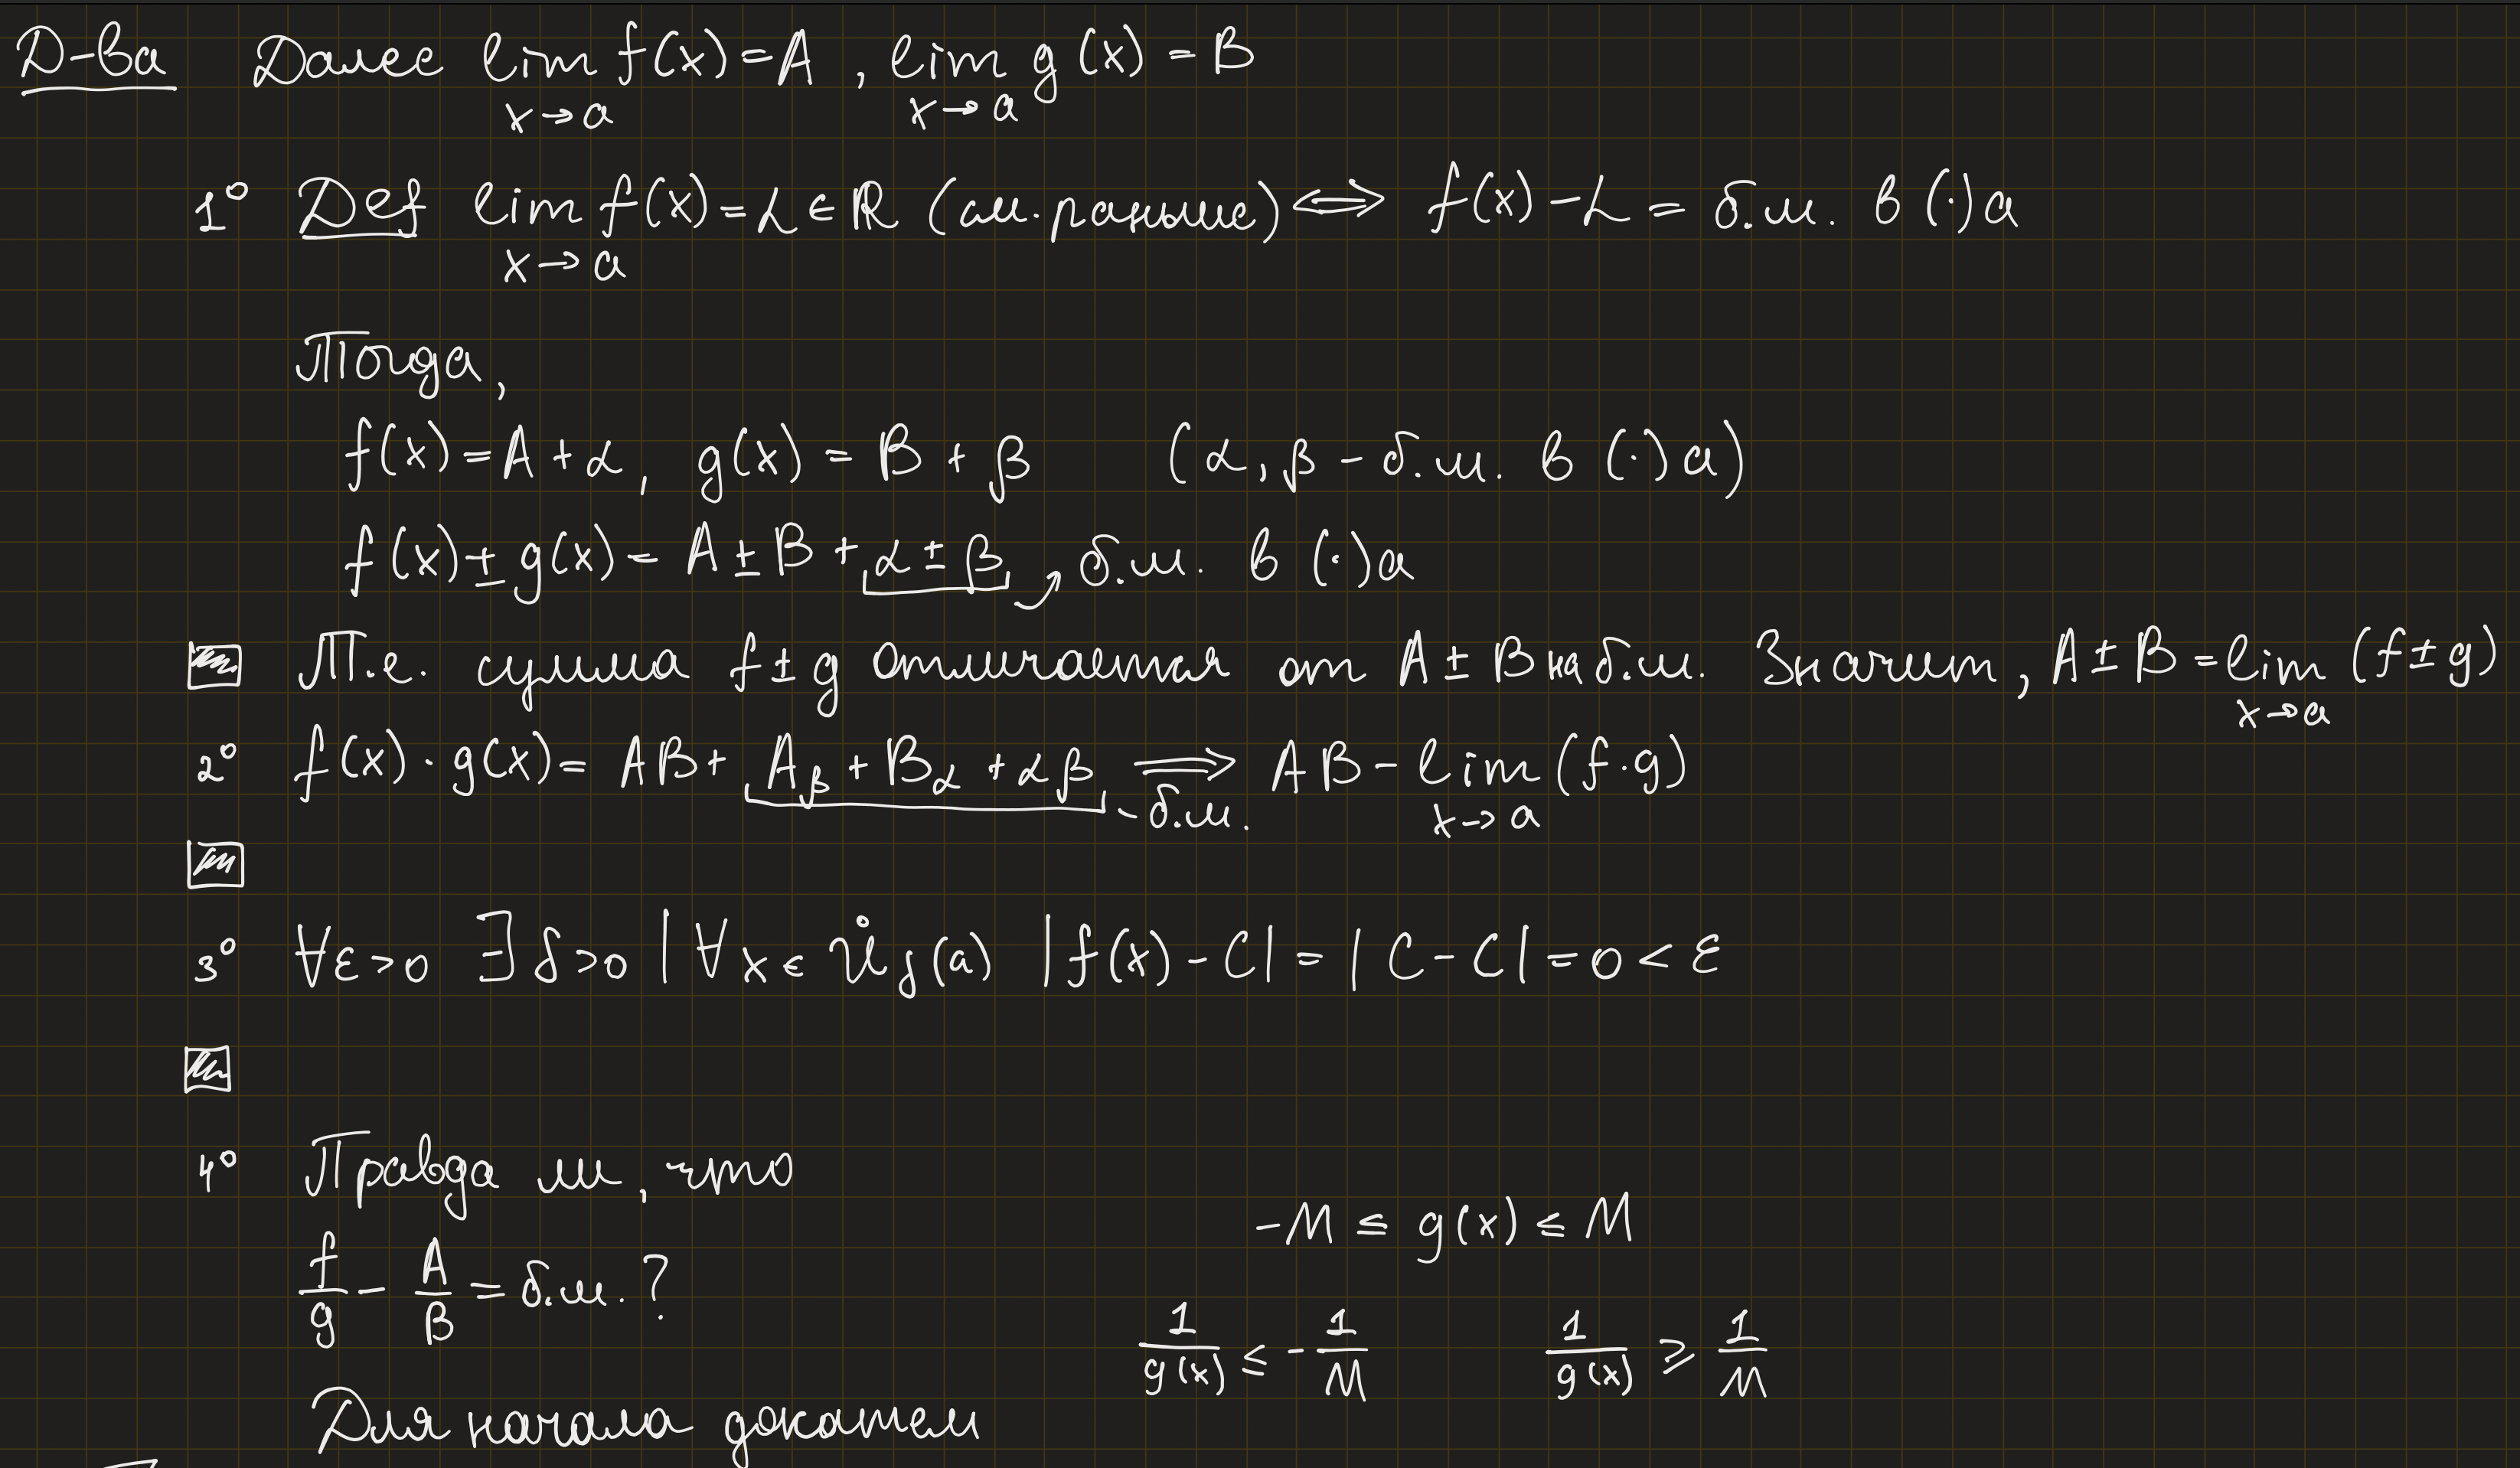 Д-ва Далее lim f(x)=A, lim g(x)=B
x→a x→a
1° Def lim f(x)=L∈ℝ (см. раньше) ⟺ f(x)-L = б.м. в (·)a
x→a
Тогда,
f(x)=A+α, g(x)=B+β (α,β-б.м. в (·)a)
f(x)±g(x)=A±B+α±β, б.м. в (·)a
Т.е. сумма f±g отличается от A±B на б.м. Значит, A±B=lim (f±g)
x→a
2° f(x)·g(x)=AB+Aβ+Bα+αβ ⟹ AB-lim (f·g)
-б.м. x→a
3° ∀ε>0 ∃δ>0 | ∀x∈Ůδ(a) |f(x)-C|=|C-C|=0<ε
4° Правда ли, что
-M≤g(x)≤M
f/g - A/B = б.м.?
1/g(x) ≤ -1/M 1/g(x) ≥ 1/M
Для начала докажем